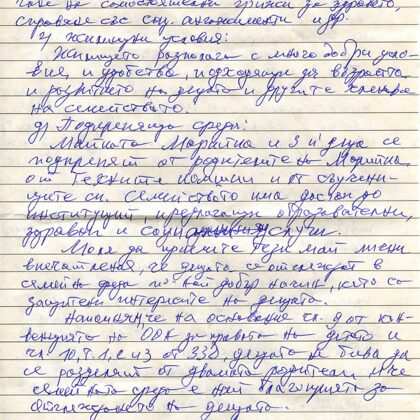 на самостоятелни грижи за здравето,
справяне със соц. ангажименти и др.
г) Жилищни условия:
Жилището разполага с много добри усло-
вия, и удобства, подходящи за възрастта
и развитието на децата и другите членове
на семейството.
д) Подкрепяща среда:
Майката Маритна и 3-те деца се
подкрепят от родителите на Маритна,
от техните и от
си. Семейството има достъп до
институции, предлагащи образователни,
здравни и соци услуги.
Моля да приемете тези мои лични
впечатления, че децата се отглеждат в
семейна среда по най добър начин, като са
защитени интересите на децата.
Напомням, че на основание чл. 9 от кон-
венцията на ООН за правата на детето и
чл. 10, т. 1, е из от ЗЗД, децата не бива да
се разделят от двамата родители, че
семейната среда е най благоприятна за
отглеждането на децата.